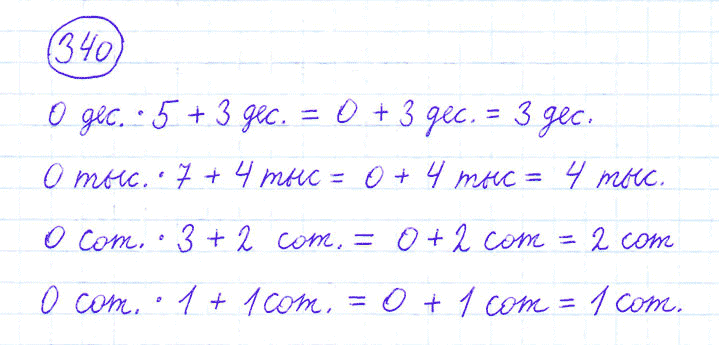 340
0 дес. · 5 + 3 дес. = 0 + 3 дес. = 3 дес.
0 тыс. · 7 + 4 тыс = 0 + 4 тыс = 4 тыс.
0 сот. · 3 + 2 сот. = 0 + 2 сот = 2 сот
0 сот. · 1 + 1 сот. = 0 + 1 сот = 1 сот.